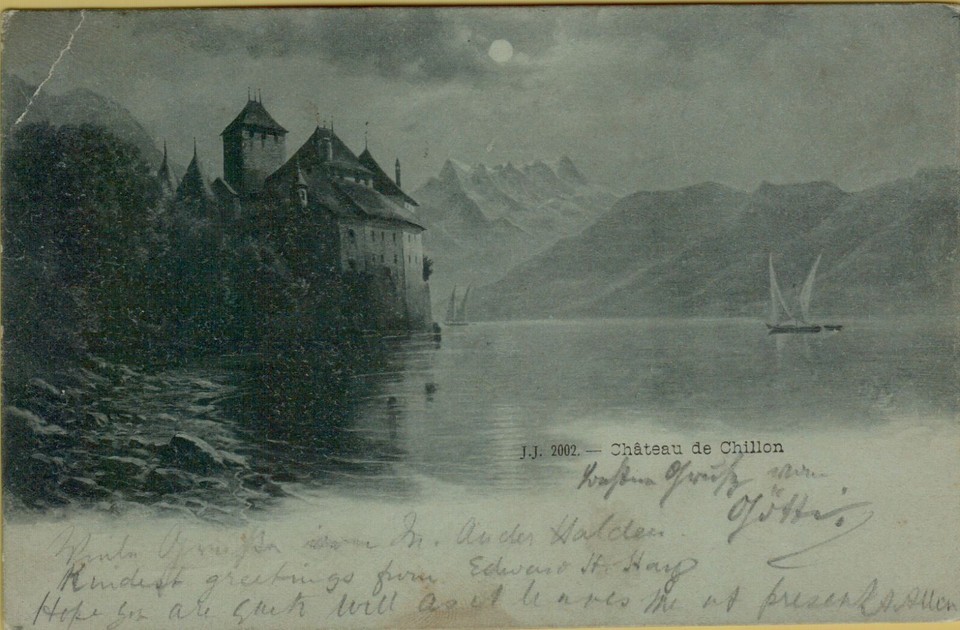 J.J. 2002. — Château de Chillon
besten Gruß von
Götti.
Viele Grüße von M. Auder Halden.
Kindest greetings from Edward H. Hay
Hope you are quite well as it leaves me at present A. Allen